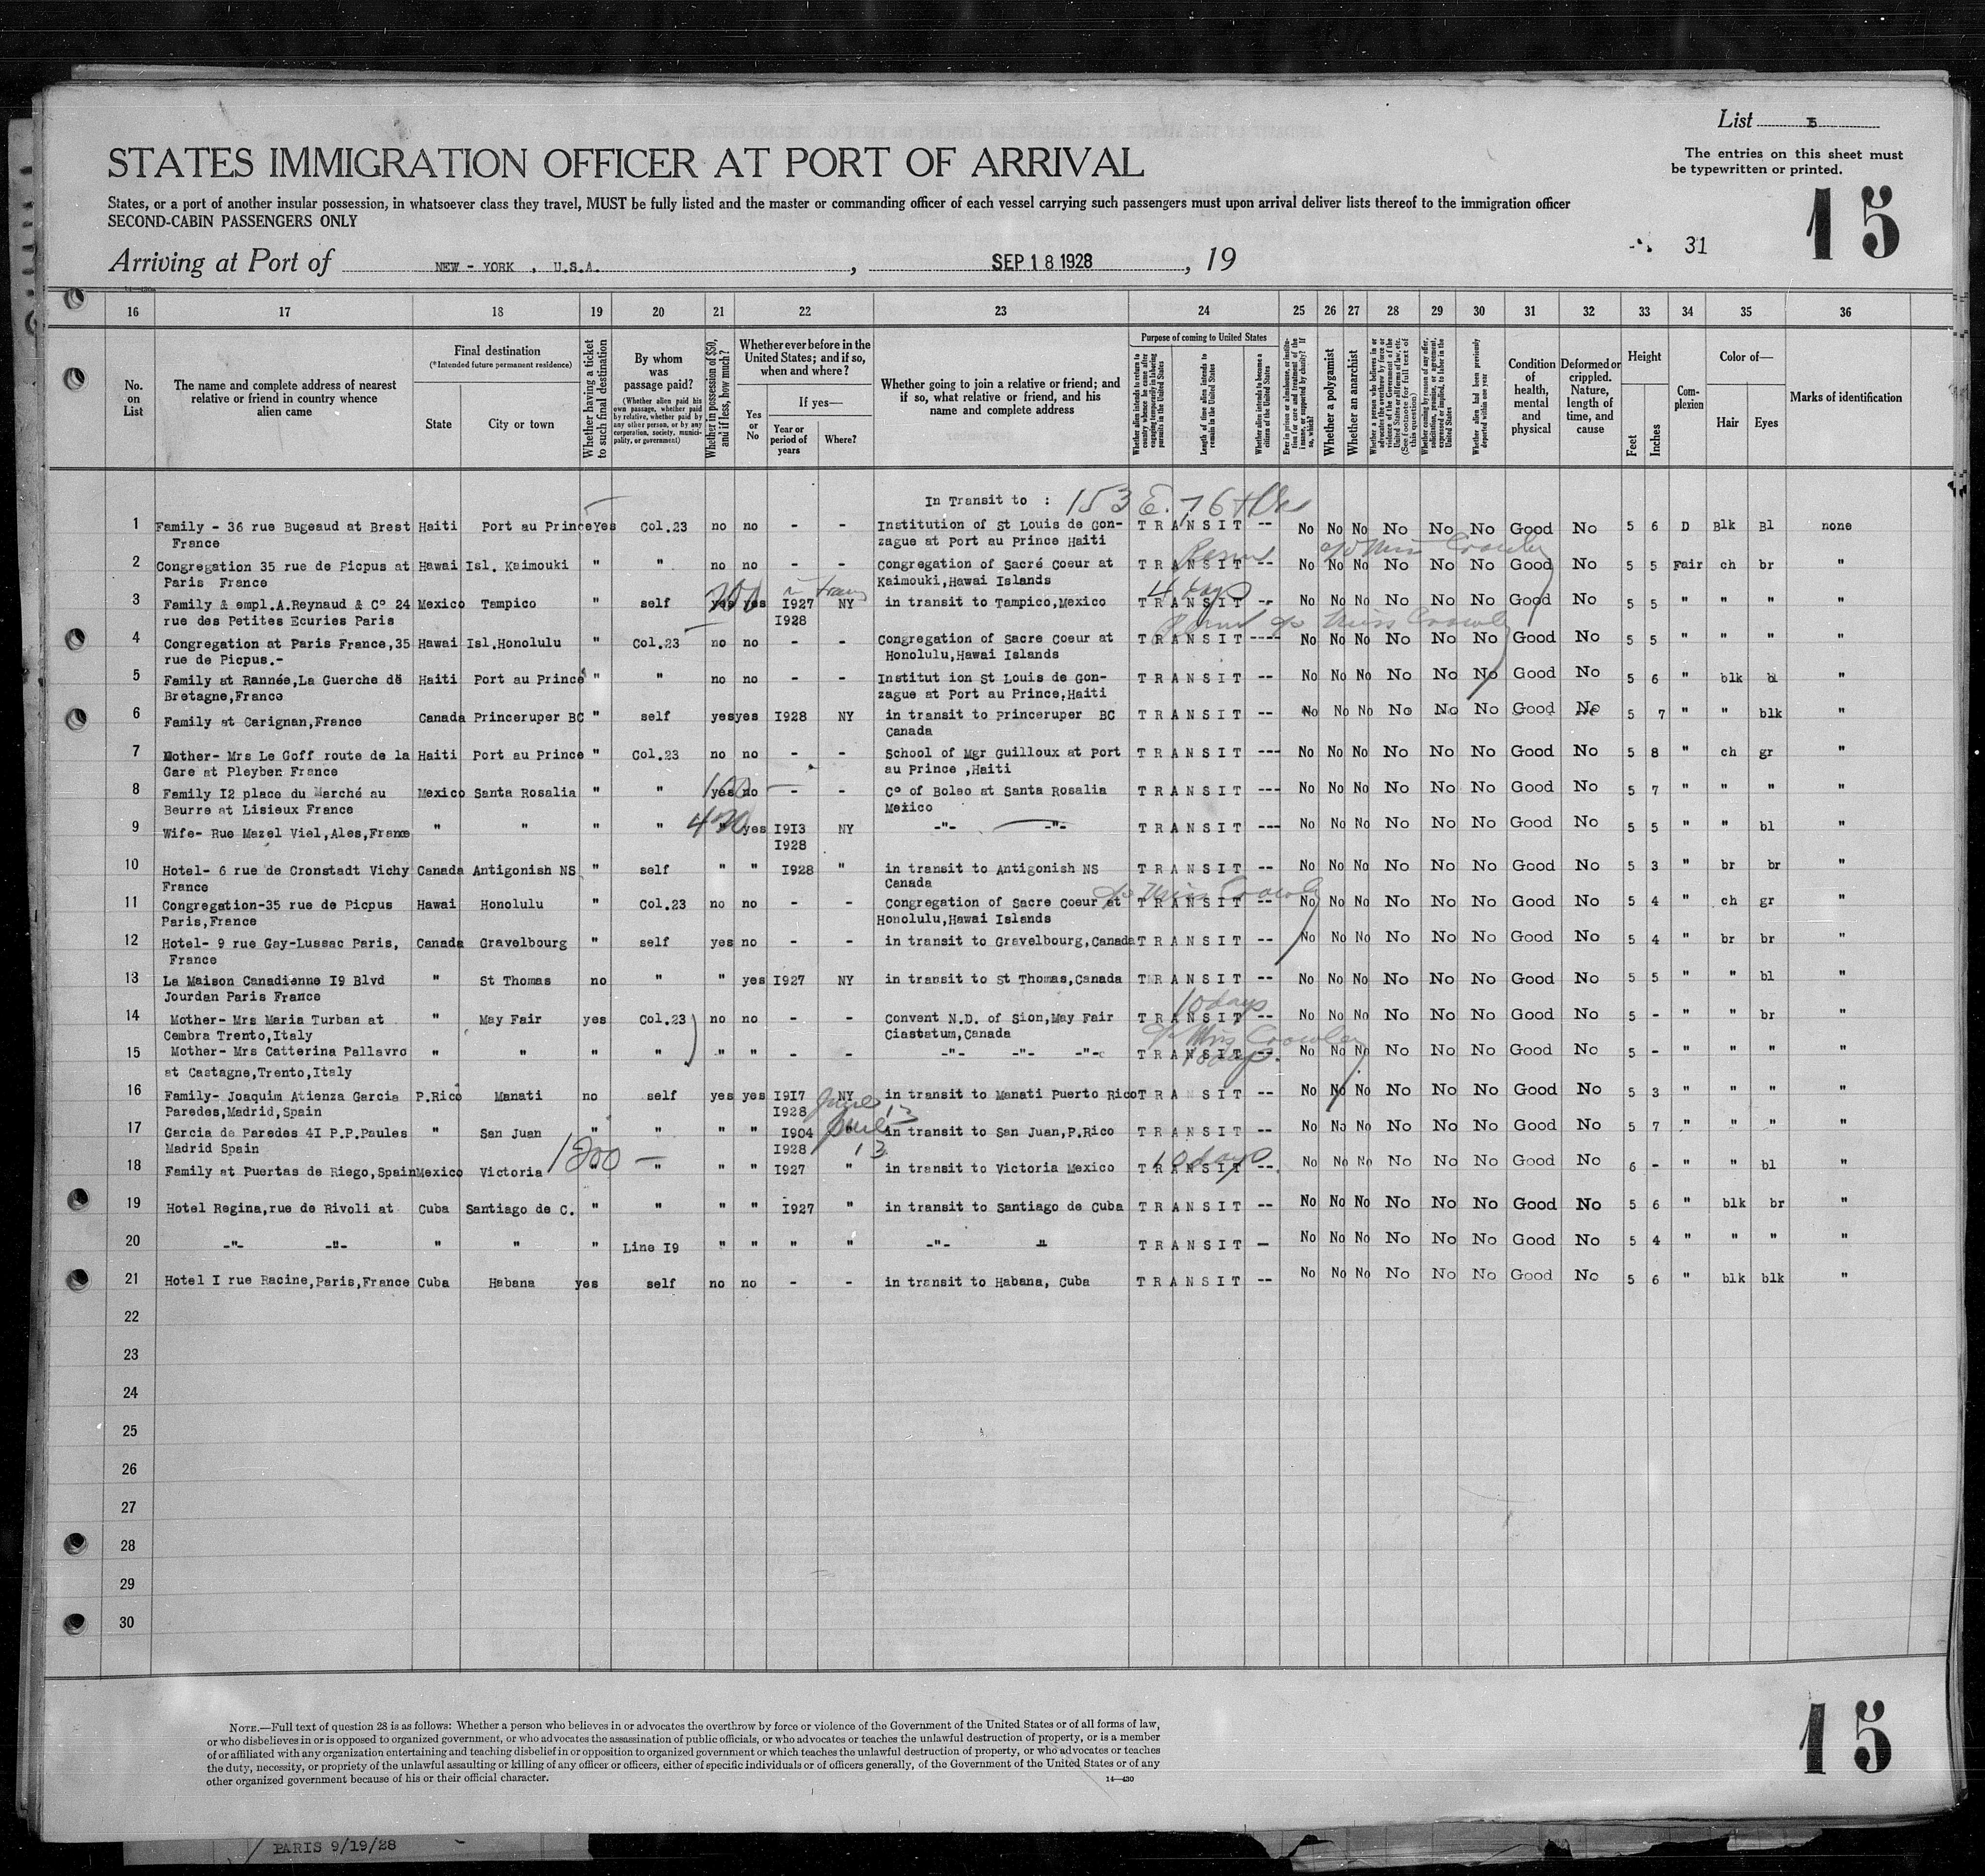 List 5
The entries on this sheet must
be typewritten or printed.
STATES IMMIGRATION OFFICER AT PORT OF ARRIVAL
15
States, or a port of another insular possession, in whatsoever class they travel, MUST be fully listed and the master or commanding officer of each vessel carrying such passengers must upon arrival deliver lists thereof to the immigration officer
SECOND-CABIN PASSENGERS ONLY
31
Arriving at Port of NEW - YORK , U.S.A. , SEP 18 1928 , 19
16 17 18 19 20 21 22 23 24 25 26 27 28 29 30 31 32 33 34 35 36
No. on List
The name and complete address of nearest relative or friend in country whence alien came
Final destination
(*Intended future permanent residence)
State
City or town
Whether having a ticket to such final destination
By whom was passage paid?
(Whether alien paid his own passage, whether paid by relative, whether paid by any other person, or by any corporation, society, municipality, or government)
Whether in possession of $50, and if less, how much?
Whether ever before in the United States; and if so, when and where?
Yes or No
If yes—
Year or period of years
Where?
Whether going to join a relative or friend; and if so, what relative or friend, and his name and complete address
Purpose of coming to United States
Whether alien intends to return to country whence he came after engaging temporarily in laboring pursuits in the United States
Length of time alien intends to remain in the United States
Whether alien intends to become a citizen of the United States
Ever in prison or almshouse, or institution for care and treatment of the insane, or supported by charity? If so, which?
Whether a polygamist
Whether an anarchist
Whether a person who believes in or advocates the overthrow by force or violence of the Government of the United States or all forms of law, etc. (See footnote for full text of this question)
Whether coming by reason of any offer, solicitation, promise, or agreement, expressed or implied, to labor in the United States
Whether alien had been previously deported within one year
Condition of health, mental and physical
Deformed or crippled. Nature, length of time, and cause
Height
Feet
Inches
Complexion
Color of—
Hair
Eyes
Marks of identification
In Transit to : 153 E. 76th
1 Family - 36 rue Bugeaud at Brest Haiti Port au Prince Yes Col.23 no no - - Institution of St Louis de Gon- TRANSIT -- No No No No No No Good No 5 6 D Blk Bl none
France zague at Port au Prince Haiti
c/o Miss Crowley
2 Congregation 35 rue de Picpus at Hawai Isl. Kaimouki " " no no - - Congregation of Sacré Coeur at TRANSIT -- No No No No No No Good No 5 5 Fair ch br "
Paris France Kaimouki,Hawai Islands
200 in trans 4 days
3 Family & empl.A.Reynaud & C° 24 Mexico Tampico " self yes yes I927 NY in transit to Tampico,Mexico TRANSIT -- No No No No No No Good No 5 5 " " " "
rue des Petites Ecuries Paris I928
c/o Miss Crowley
4 Congregation at Paris France,35 Hawai Isl.Honolulu " Col.23 no no - - Congregation of Sacre Coeur at TRANSIT ---- No No No No No No Good No 5 5 " " " "
rue de Picpus.- Honolulu,Hawai Islands
5 Family at Rannée,La Guerche dë Haiti Port au Prince " " no no - - Institut ion St Louis de Gon- TRANSIT -- No No No No No No Good No 5 6 " blk bl "
Bretagne,France zague at Port au Prince,Haiti
6 Family at Carignan,France Canada Princeruper BC " self yes yes I928 NY in transit to Princeruper BC TRANSIT -- No No No No No No Good No 5 7 " " blk "
Canada
7 Mother- Mrs Le Goff route de la Haiti Port au Prince " Col.23 no no - - School of Mgr Guilloux at Port TRANSIT --- No No No No No No Good No 5 8 " ch gr "
Gare at Pleyben France au Prince ,Haiti
100
8 Family I2 place du Marché au Mexico Santa Rosalia " " yes no - - C° of Boleo at Santa Rosalia TRANSIT --- No No No No No No Good No 5 7 " " " "
Beurre at Lisieux France Mexico
9 Wife- Rue Mazel Viel,Ales,France " " " " 420 yes I9I3 NY -"- -"- TRANSIT --- No No No No No No Good No 5 5 " " bl "
I928
10 Hotel- 6 rue de Cronstadt Vichy Canada Antigonish NS " self " " I928 " in transit to Antigonish NS TRANSIT -- No No No No No No Good No 5 3 " br br "
France Canada
c/o Miss Crowley
11 Congregation-35 rue de Picpus Hawai Honolulu " Col.23 no no - - Congregation of Sacre Coeur at TRANSIT -- No No No No No No Good No 5 4 " ch gr "
Paris,France Honolulu,Hawai Islands
12 Hotel- 9 rue Gay-Lussac Paris, Canada Gravelbourg " self yes no - - in transit to Gravelbourg,Canada TRANSIT -- No No No No No No Good No 5 4 " br br "
France
13 La Maison Canadienne I9 Blvd " St Thomas no " " yes I927 NY in transit to St Thomas,Canada TRANSIT -- No No No No No No Good No 5 5 " " bl "
Jourdan Paris France
10 days
14 Mother- Mrs Maria Turban at " May Fair yes Col.23 no no - - Convent N.D. of Sion,May Fair TRANSIT -- No No No No No No Good No 5 - " " br "
Cembra Trento,Italy Ciastatum,Canada
c/o Miss Crowley
15 Mother- Mrs Catterina Pallavro " " " " " " - - -"- -"- -"- TRANSIT -- No No No No No No Good No 5 - " " " "
at Castagne,Trento,Italy 10 days
16 Family- Joaquim Atienza Garcia P.Rico Manati no self yes yes I9I7 NY in transit to Manati Puerto Rico TRANSIT -- No No No No No No Good No 5 3 " " " "
Paredes,Madrid,Spain I928
13
17 Garcia de Paredes 4I P.P.Paules " San Juan " " " " I904 " in transit to San Juan,P.Rico TRANSIT -- No No No No No No Good No 5 7 " " " "
Madrid Spain I928 13
1200 — 10 days
18 Family at Puertas de Riego,Spain Mexico Victoria " " " " I927 " in transit to Victoria Mexico TRANSIT -- No No No No No No Good No 6 - " " bl "
19 Hotel Regina,rue de Rivoli at Cuba Santiago de C. " " " " I927 " in transit to Santiago de Cuba TRANSIT -- No No No No No No Good No 5 6 " blk br "
20 -"- -"- " " " Line I9 " " " " -"- " TRANSIT — No No No No No No Good No 5 4 " " " "
21 Hotel I rue Racine,Paris,France Cuba Habana yes self no no - - in transit to Habana, Cuba TRANSIT -- No No No No No No Good No 5 6 " blk blk "
22
23
24
25
26
27
28
29
30
NOTE.—Full text of question 28 is as follows: Whether a person who believes in or advocates the overthrow by force or violence of the Government of the United States or of all forms of law,
or who disbelieves in or is opposed to organized government, or who advocates the assassination of public officials, or who advocates or teaches the unlawful destruction of property, or is a member
of or affiliated with any organization entertaining and teaching disbelief in or opposition to organized government or which teaches the unlawful destruction of property, or who advocates or teaches
the duty, necessity, or propriety of the unlawful assaulting or killing of any officer or officers, either of specific individuals or of officers generally, of the Government of the United States or of any
other organized government because of his or their official character.
14—430
15
PARIS 9/19/28